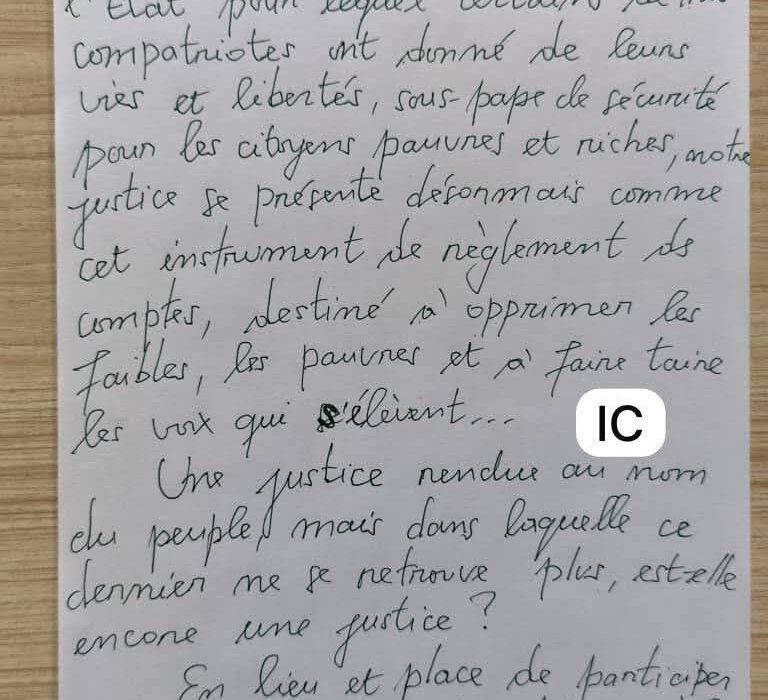 l'Etat pour lequel certains
compatriotes ont donné de leurs
vies et libertés, sous-pape de sécurité
pour les citoyens pauvres et riches, notre
justice se présente désormais comme
cet instrument de règlement de
comptes, destiné à opprimer les
faibles, les pauvres et à faire taire
les voix qui s'élèvent...
IC
Une justice rendue au nom
du peuple, mais dans laquelle ce
dernier ne se retrouve plus, est-elle
encore une justice ?
En lieu et place de participer